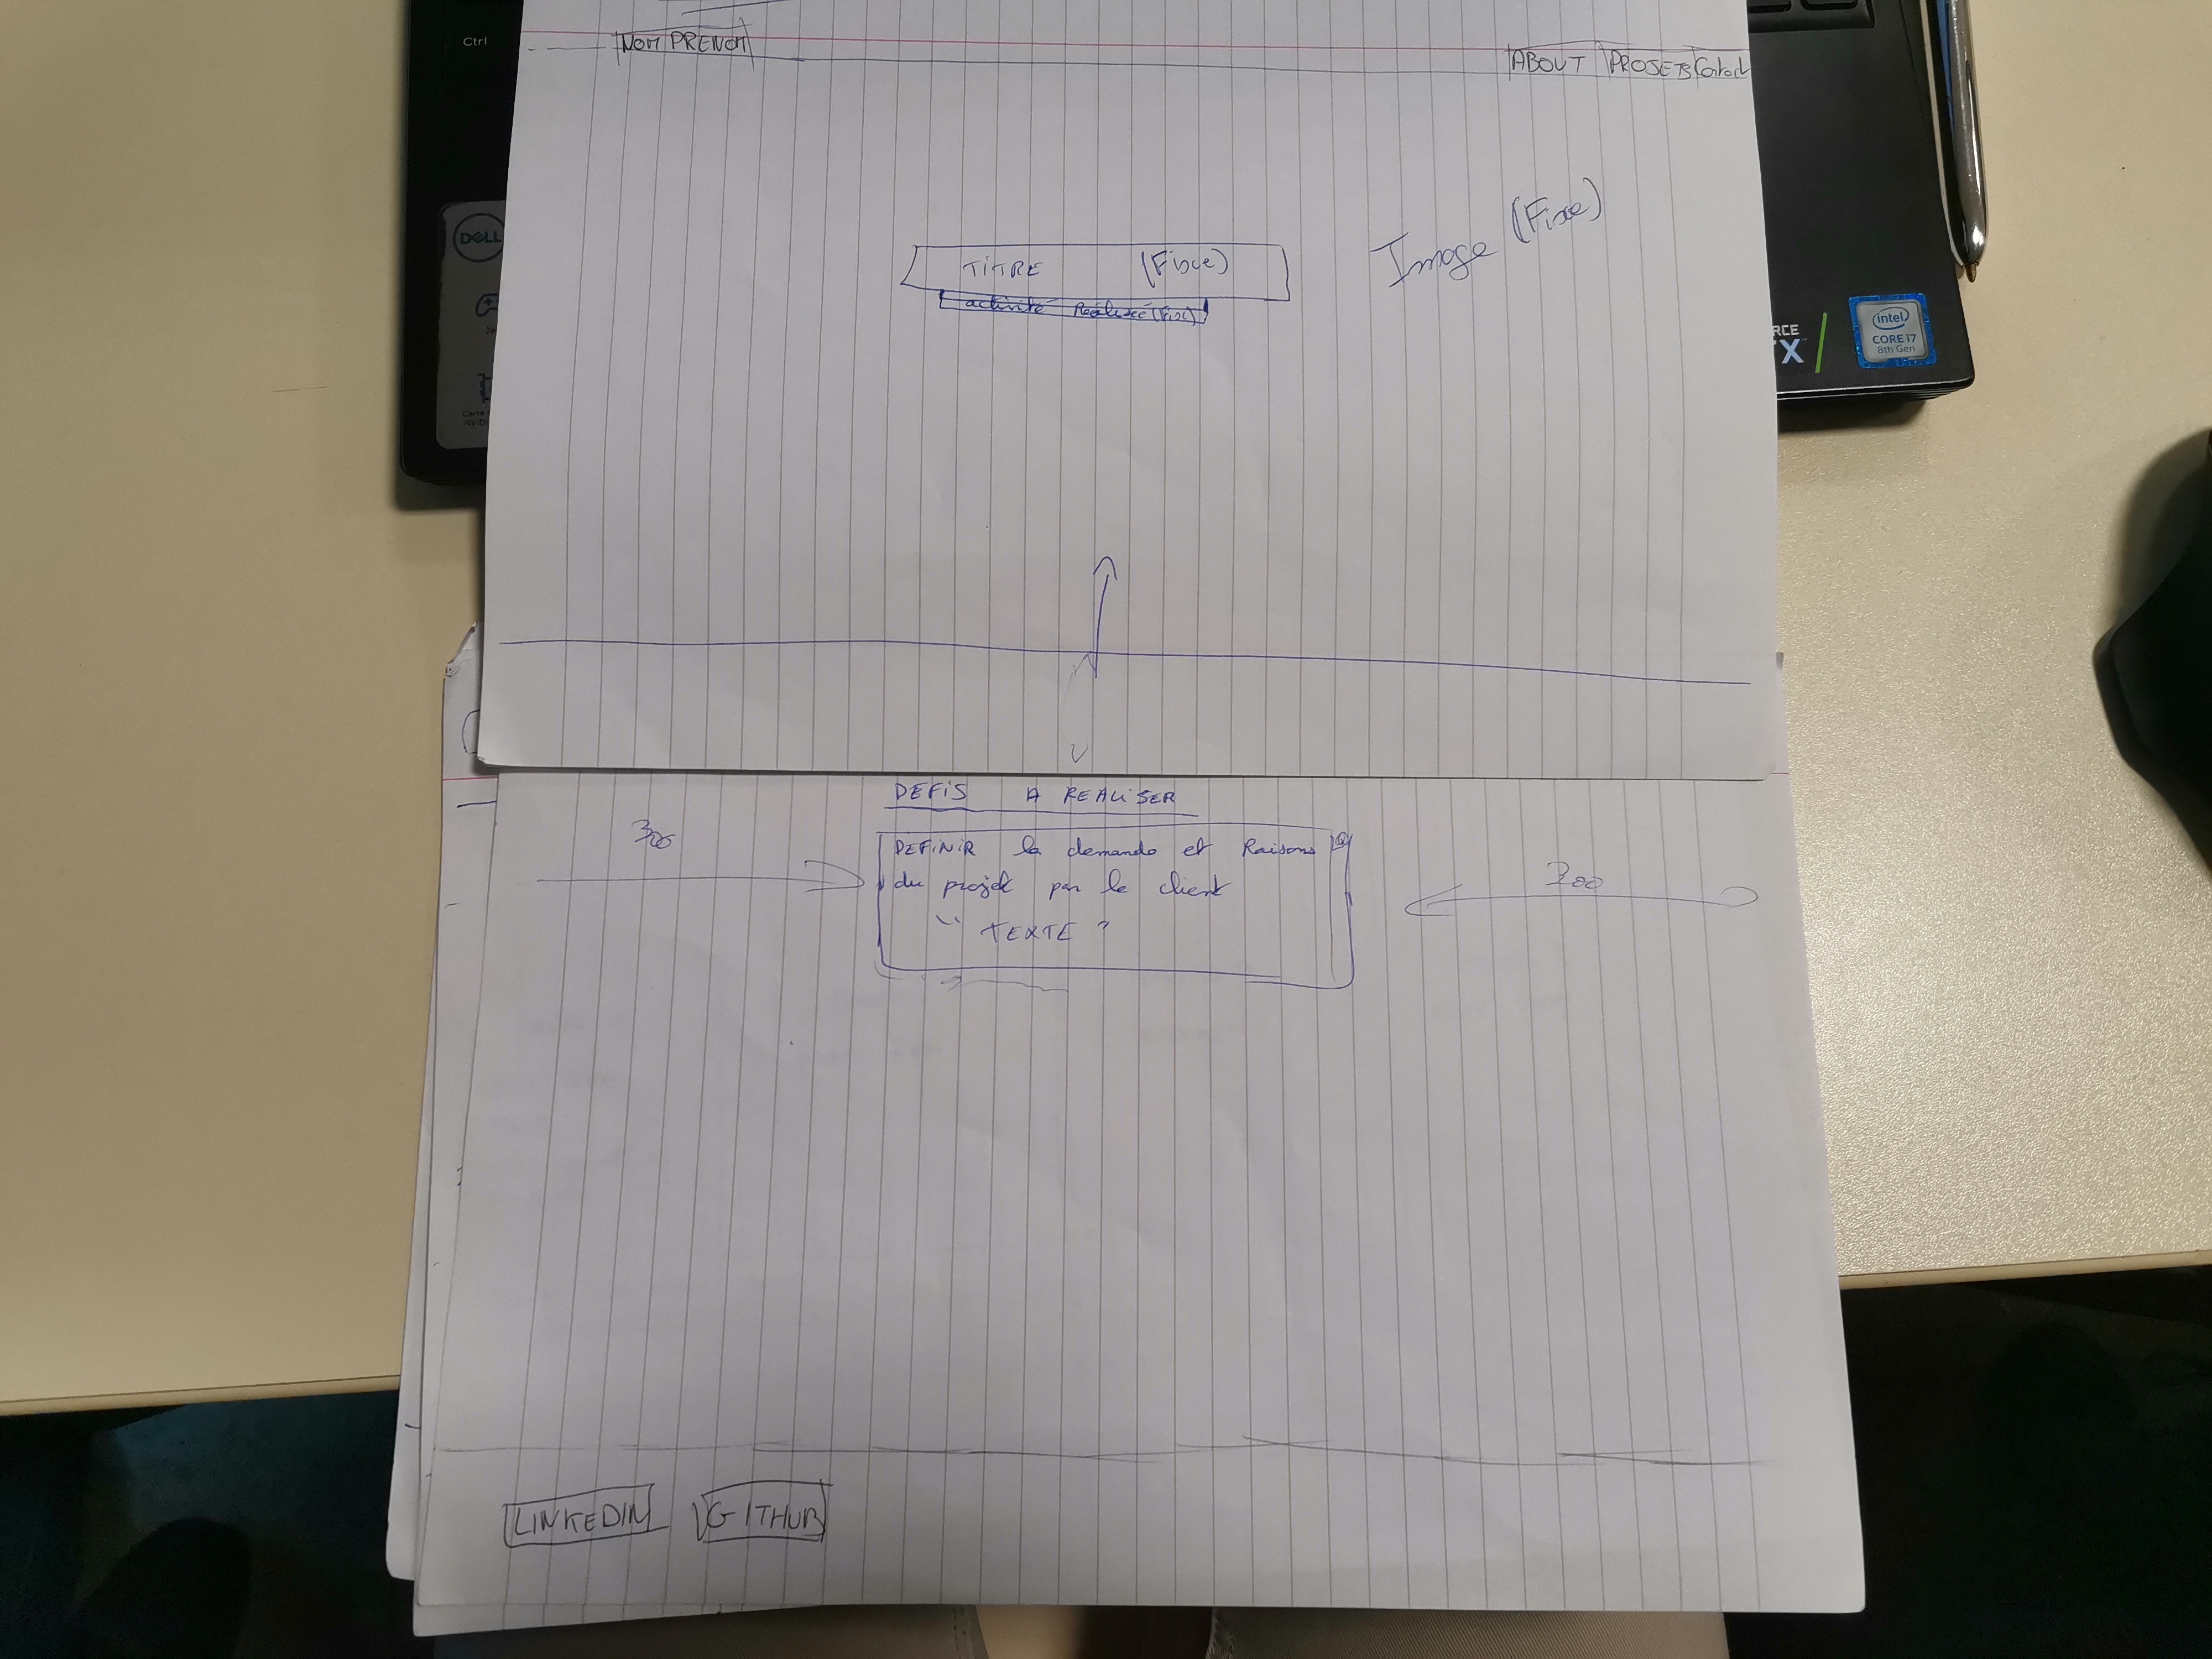 Ctrl
NOM PRENOM
ABOUT PROJETS Contact
DELL
Image (Fixe)
TITRE (Fixe)
activité Réalisée (Fixe)
intel
CORE i7
8th Gen
RCE
TX
Carte
NVID
DEFIS A REALISER
300
DEFINIR la demande et Raisons
du projet par le client
" TEXTE "
300
LINKEDIN GITHUB